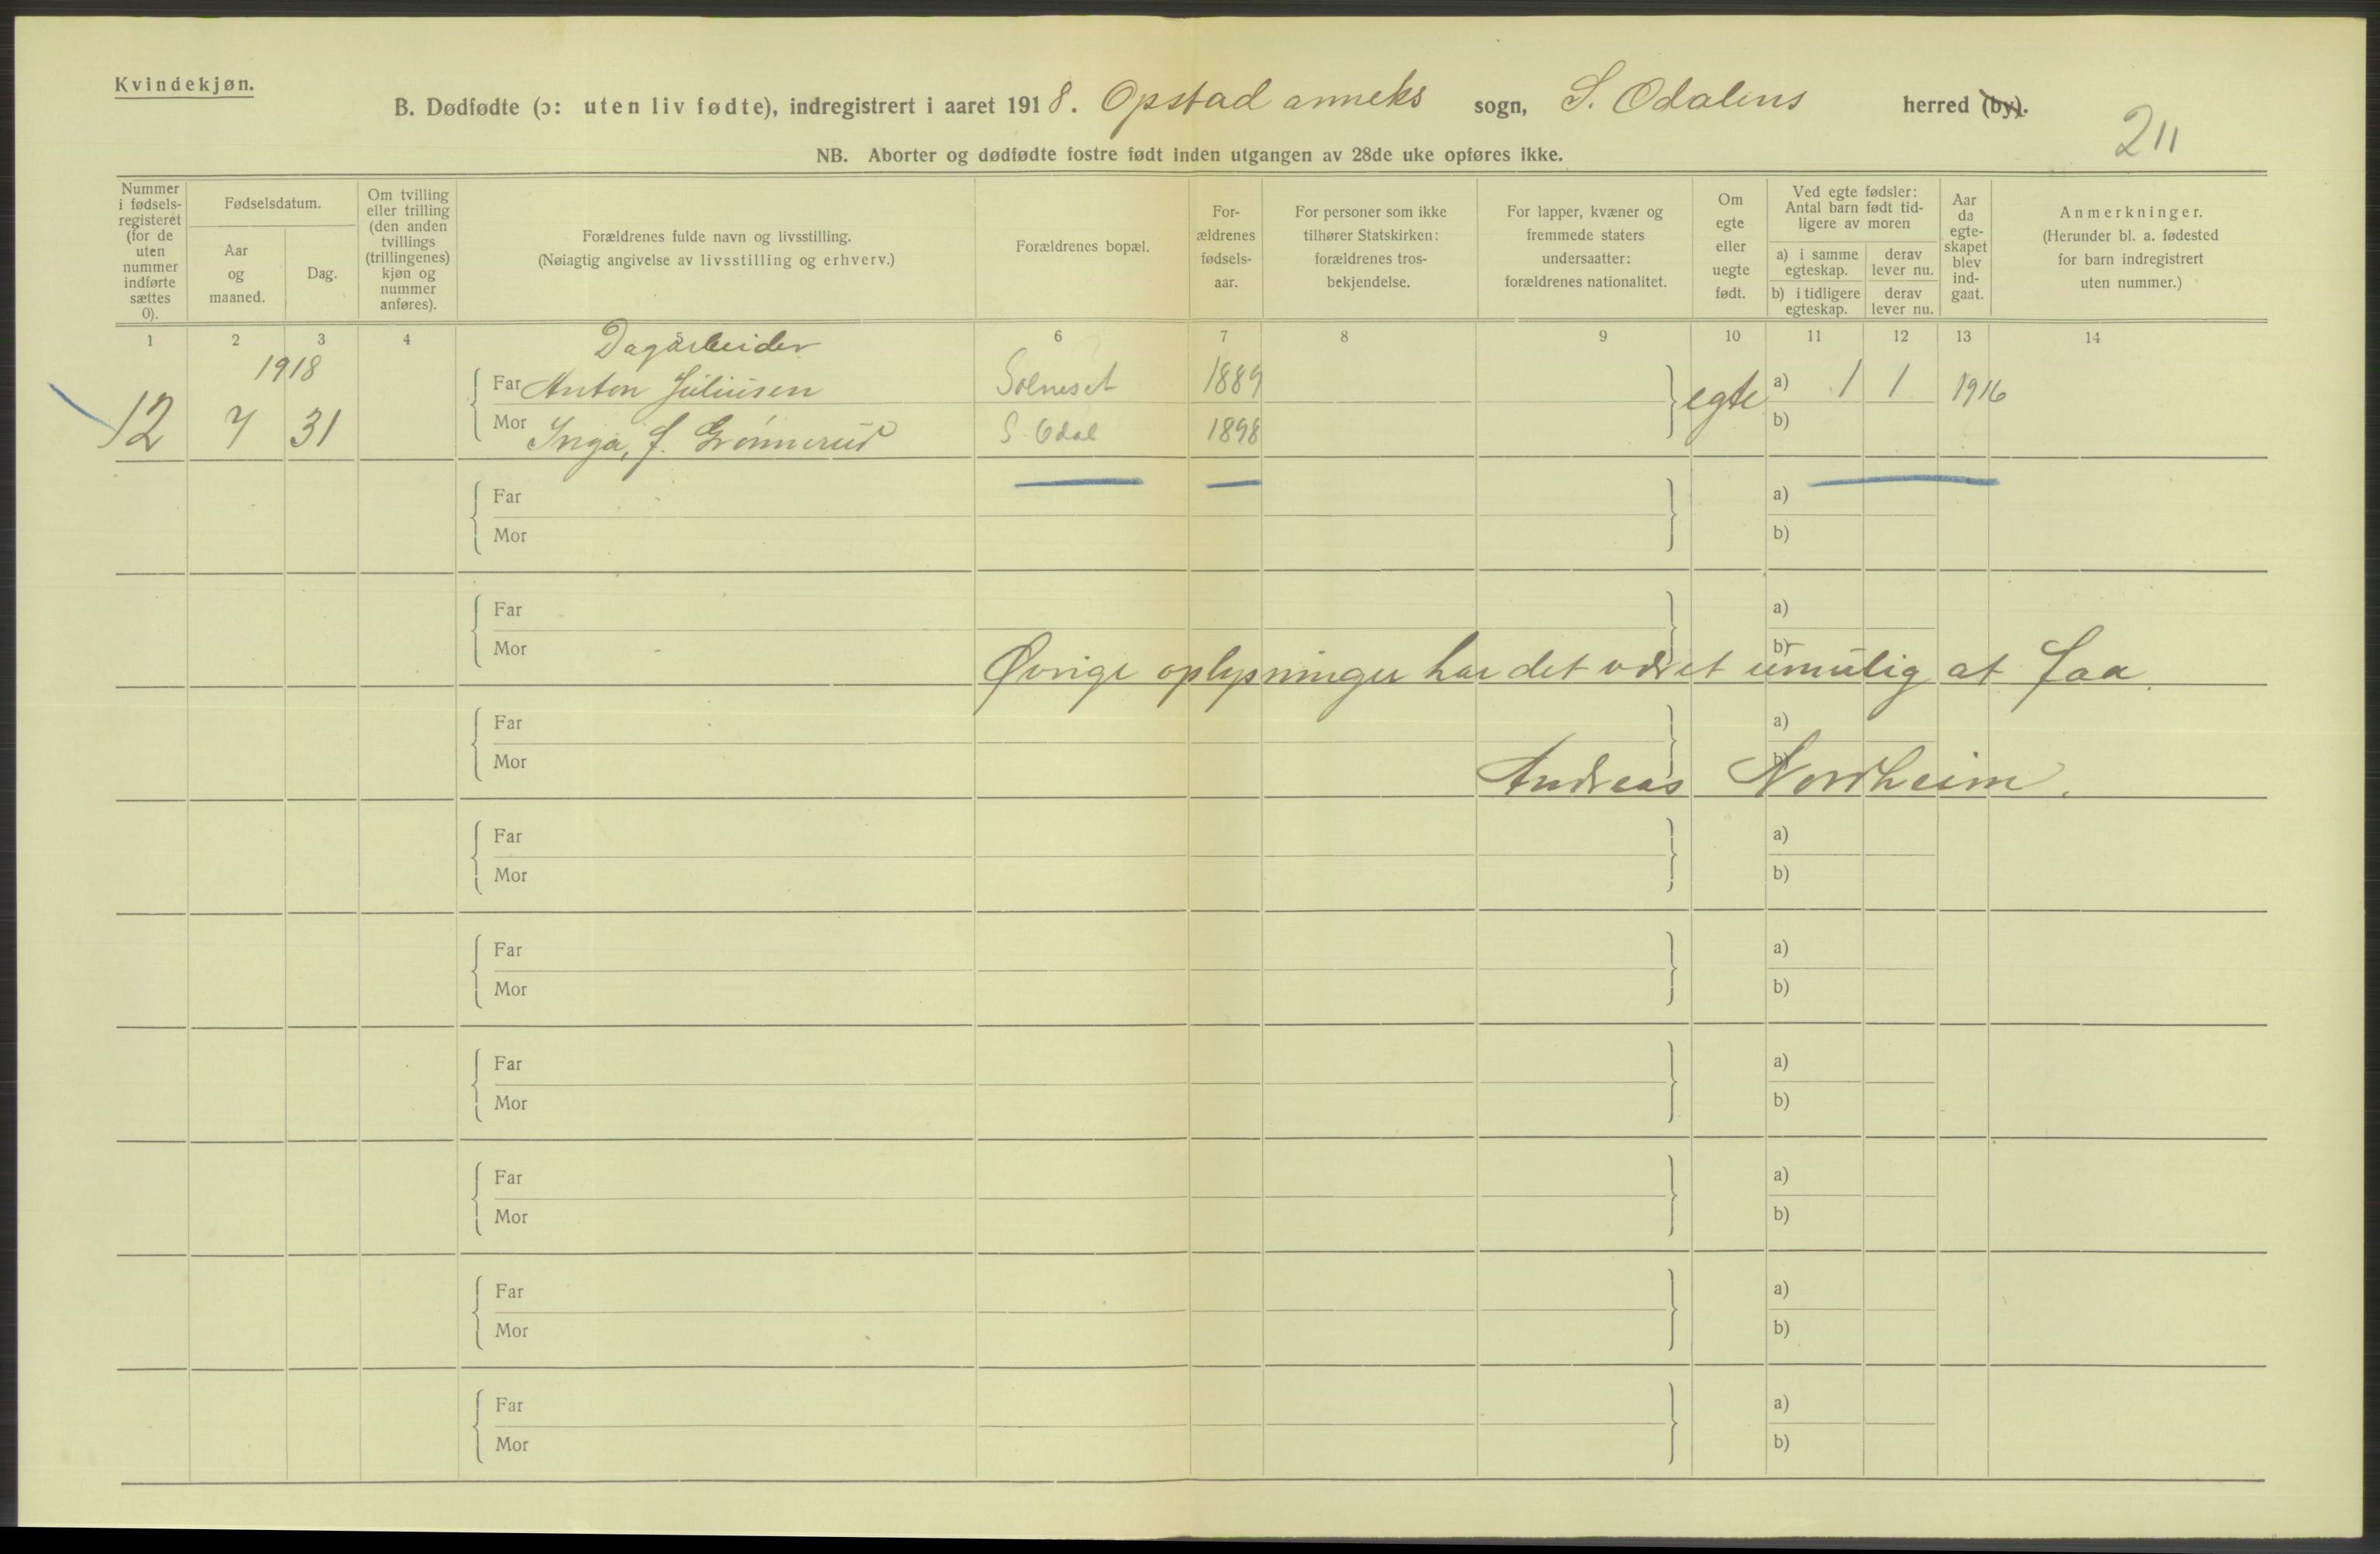 Kvindekjøn.
B. Dødfødte (ɔ: uten liv fødte), indregistrert i aaret 1918. Opstad anneks sogn, S. Odalens herred (by).
211
NB. Aborter og dødfødte fostre født inden utgangen av 28de uke opføres ikke.
Nummer i fødsels-registeret (for de uten nummer indførte sættes 0).
Fødselsdatum.
Aar og maaned.
Dag.
Om tvilling eller trilling (den anden tvillings (trillingenes) kjøn og nummer anføres).
Forældrenes fulde navn og livsstilling.
(Nøiagtig angivelse av livsstilling og erhverv.)
Forældrenes bopæl.
For-ældrenes fødsels-aar.
For personer som ikke tilhører Statskirken: forældrenes tros-bekjendelse.
For lapper, kvæner og fremmede staters undersaatter: forældrenes nationalitet.
Om egte eller uegte født.
Ved egte fødsler: Antal barn født tid-ligere av moren
a) i samme egteskap.
derav lever nu.
b) i tidligere egteskap.
derav lever nu.
Aar da egte-skapet blev ind-gaat.
Anmerkninger.
(Herunder bl. a. fødested for barn indregistrert uten nummer.)
1 2 3 4 6 7 8 9 10 11 12 13 14
1918 Dagarbeider
Far Anton Juliusen Solneset 1889 a) 1 1 1916
12 7 31 Mor Inga, f. Grønnerud S. Odal 1898 egte b)
Far a)
Mor b)
Far a)
Mor b)
Øvrige oplysninger har det været umulig at faa.
Far a)
Mor b)
Andreas Nordheim.
Far a)
Mor b)
Far a)
Mor b)
Far a)
Mor b)
Far a)
Mor b)
Far a)
Mor b)
Far a)
Mor b)